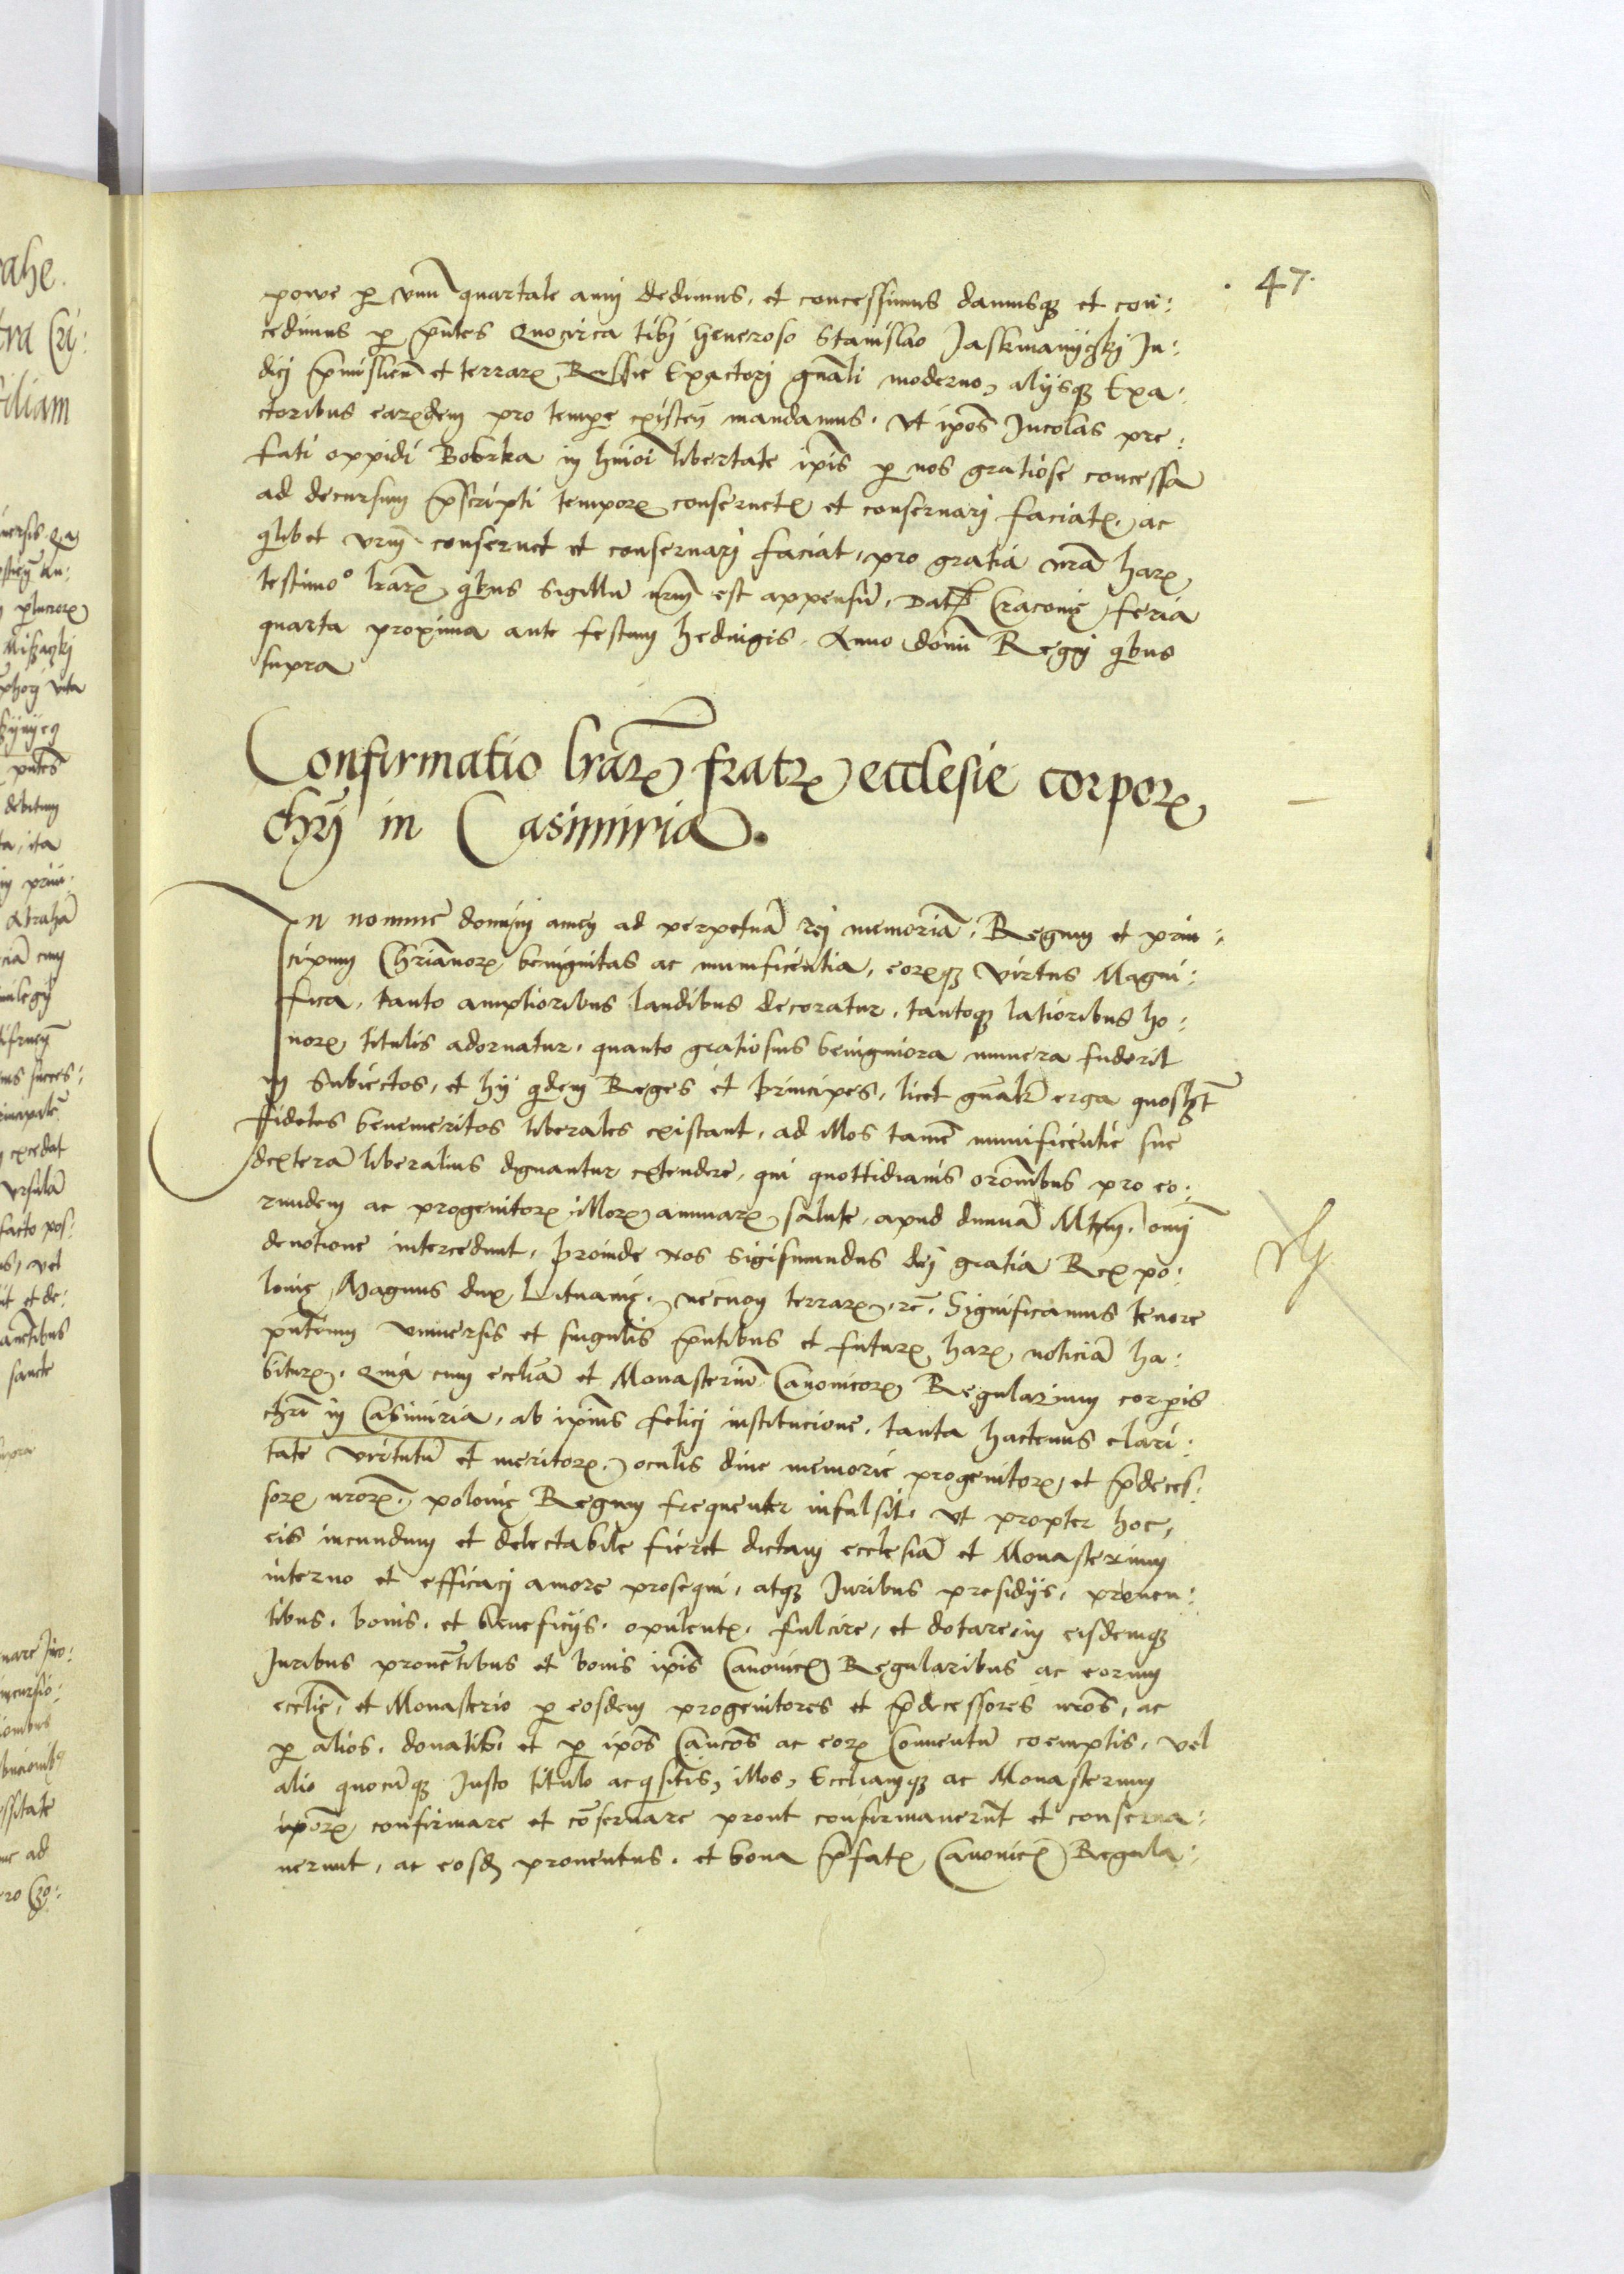 47.
powe p vnu quartale anni dedimus, et concessimus damusq et con:
cedimus p pntes Quocirca tibi Generoso Stanislao Jaskmanijczkij Ju:
dicj pmislien et terrarꝫ Russie Exactorj gnali moderno, alijsq Exa:
ctoribus earꝫdem pro tempe existen mandamus. Vt ipos Jncolas pre:
fati oppidi Bobrka in hmoi libertate ipis p nos gratiose concessa
ad decursum pscripti temporꝫ conseruetꝫ et conseruarj faciatꝫ, ac
qlibet vrm conseruet et conseruarj faciat, pro gratia nra harꝫ
testimo° lrarꝫ, qbus Sigillu nrm est appensu, Datꝫ Cracouie feria
quarta proxima ante festum hedwigis. Anno domi Regni qbus
supra
Confirmatio lrarꝫ fratrꝫ ecclesie corporꝫ
chrj in Casimiria.
In nomine dominj amen ad perpetua rei memoria. Regum et prin:
cipum Chrianorꝫ benignitas ac munificentia, eorꝫq virtus Magni:
fica, tanto amplioribus laudibus decoratur, tantoq latioribus ho:
norꝫ titulis adornatur, quanto gratiosius benigniora munera fuderit
in Subiectos, et hij qdem Reges et Principes, licet gnalr erga quoslꝫt
ffideles benemeritos liberales existant, ad illos tame munificentie sue
dextera liberalius dignantur extendere, qui quottidianis oronibus pro eo:
rundem ac progenitorꝫ illorꝫ animarꝫ salute, apud diuina Mtem, omj
deuotione intercedunt, Proinde Nos Sigismundus dei gratia Rex po:
lonie Magnus dux Lituanie, necnon terrarꝫ rc. Significamus tenore
pntium vniuersis et singulis pntibus et futurꝫ, harꝫ noticia ha:
biturꝫ. Quia cum eccliа et Monasteriu Canonicorꝫ Regularium corpis
chri in Casimiria, ab ipius felicj institucione, tanta hactenus clari:
tate virtutu et meritorꝫ, oculis diue memorie progenitorꝫ, et pdeces:
sorꝫ nrorꝫ, polonie Regum frequenter infulsit, vt propter hoc,
eis iucundum et delectabile fieret dictam ecclesia et Monasterium
interno et efficacj amore prosequi, atq Juribus presidijs, prouen:
tibus, bonis, et beneficijs, opulentꝫ, fulcire, et dotare, in eisdemq
Juribus prouetibus et bonis ipis Canonicꝫ Regularibus ac eorum
ecclie, et Monasterio p eosdem progenitores et pdecessores nros, ac
p alios, donatib, et p ipos Cancos ac eorꝫ Conuentu coemptis, vel
alio quocuq Justo titulo acqsitis, illos, Eccliamq ac Monasterium
iporꝫ confirmare et coseruare prout confirmauerut et conserua:
uerunt, ac eosd prouentus, et bona pfatꝫ Canonicꝫ Regula: